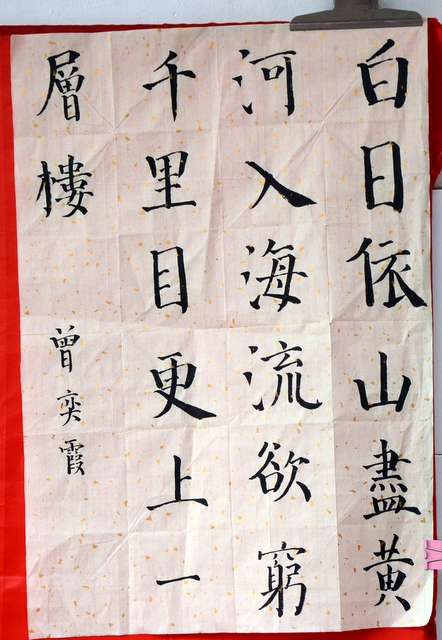 白日依山盡黄
河入海流欲窮
千里目更上一
層樓
曾奕霞